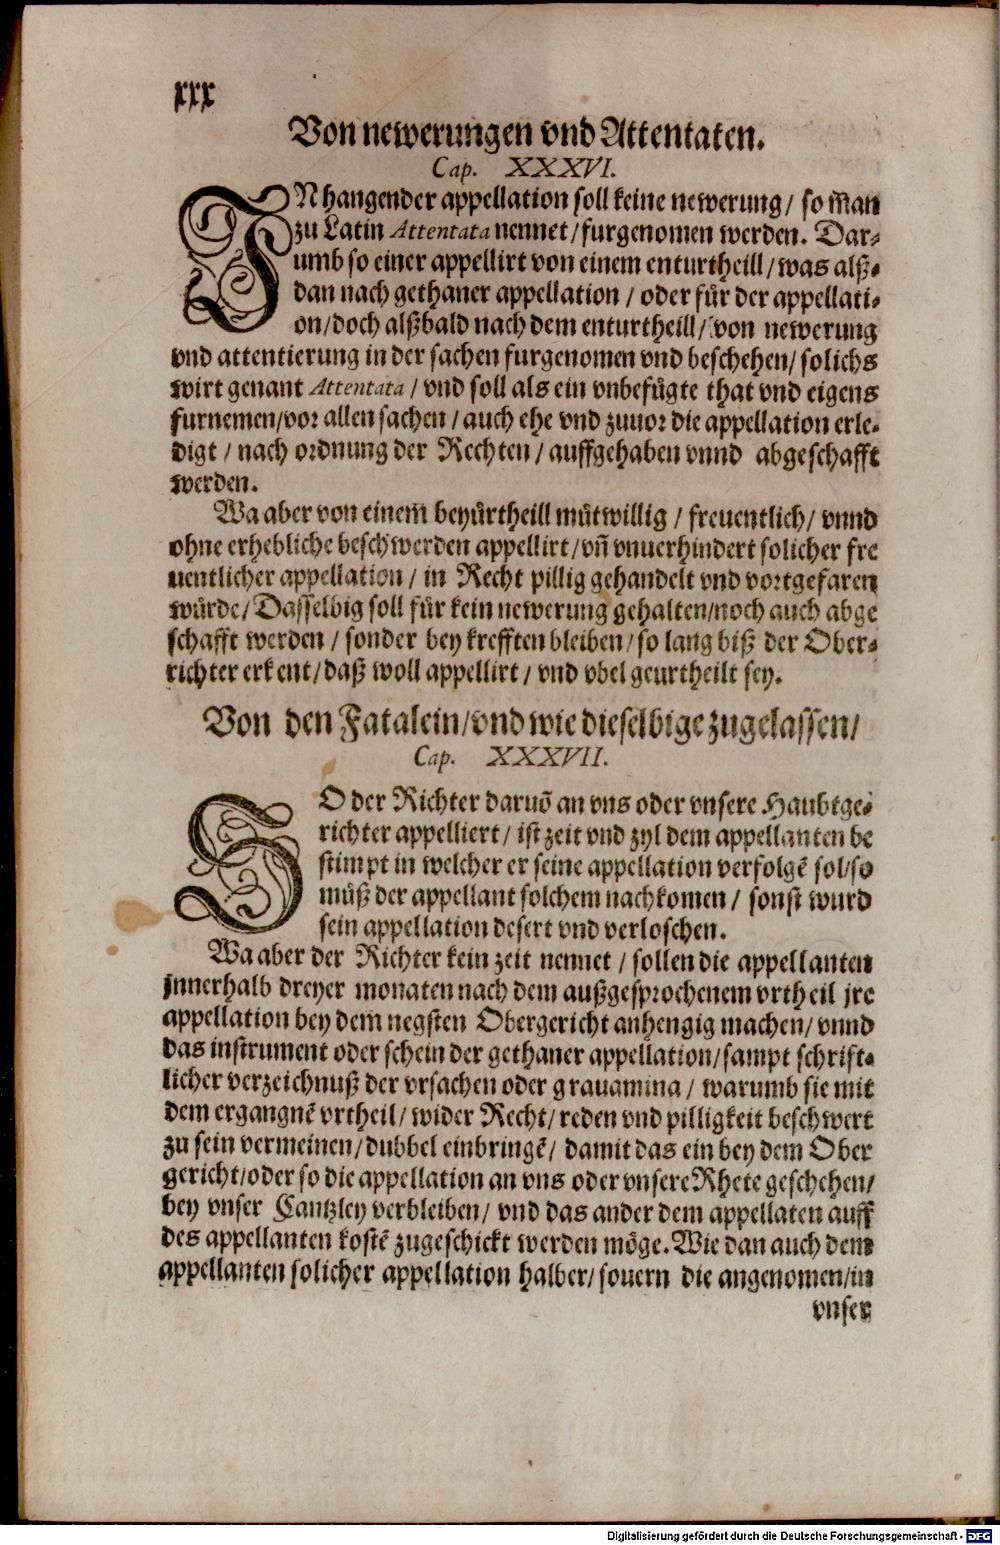 xxx
Von newerungen vnd Attentaten.
Cap. XXXVI.
IN hangender appellation soll keine newerung / so man
zu Latin Attentata nennet / furgenomen werden. Dar-
umb so einer appellirt von einem enturtheill / was alß-
dan nach gethaner appellation / oder für der appellati-
on / doch alßbald nach dem enturtheill / von newerung
vnd attentierung in der sachen furgenomen vnd beschehen / solichs
wirt genant Attentata / vnd soll als ein vnbefügte that vnd eigens
furnemen / vor allen sachen / auch ehe vnd zuuor die appellation erle-
digt / nach ordnung der Rechten / auffgehaben vnnd abgeschafft
werden.
Wa aber von einem beyürtheill mütwillig / freuentlich / vnnd
ohne erhebliche beschwerden appellirt / vñ vnuerhindert solicher fre
uentlicher appellation / in Recht pillig gehandelt vnd vortgefaren
würde / Dasselbig soll für kein newerung gehalten / noch auch abge
schafft werden / sonder bey krefften bleiben / so lang biß der Ober-
richter erkent / daß woll appellirt / vnd vbel geurtheilt sey.
Von den Fatalein / vnd wie dieselbige zugelassen /
Cap. XXXVII.
SO der Richter daruõ an vns oder vnsere Haubtge-
richter appelliert / ist zeit vnd zyl dem appellanten be
stimpt in welcher er seine appellation verfolgẽ sol / so
müß der appellant solchem nachkomen / sonst wurd
sein appellation desert vnd verloschen.
Wa aber der Richter kein zeit nennet / sollen die appellanten
jnnerhalb dreyer monaten nach dem außgesprochenem vrtheil jre
appellation bey dem negsten Obergericht anhengig machen / vnnd
das instrument oder schein der gethaner appellation / sampt schrift-
licher verzeichnuß der vrsachen oder grauamina / warumb sie mit
dem ergangnẽ vrtheil / wider Recht / reden vnd pilligkeit beschwert
zu sein vermeinen / dubbel einbringẽ / damit das ein bey dem Ober
gericht / oder so die appellation an vns oder vnsere Rhete geschehen /
bey vnser Cantzley verbleiben / vnd das ander dem appellaten auff
des appellanten kostẽ zugeschickt werden möge. Wie dan auch dem
appellanten solicher appellation halber / souern die angenomen / in
vnser
Digitalisierung gefördert durch die Deutsche Forschungsgemeinschaft - DFG